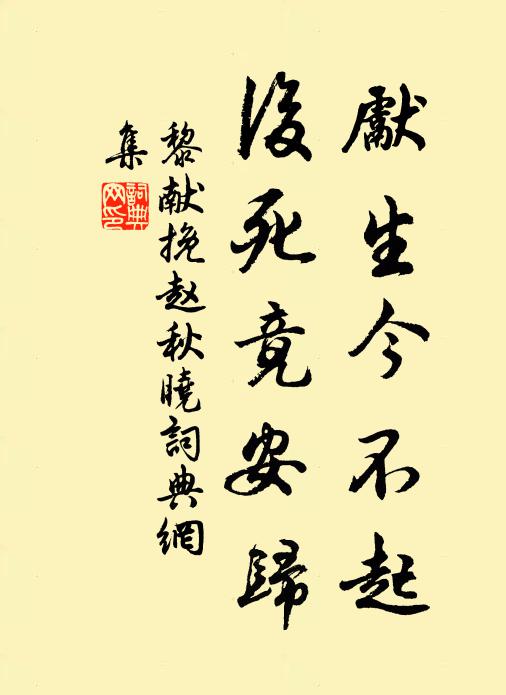 獻生今不起
後死竟安歸
黎献挽赵秋曉詞典網
集
詞典
网印